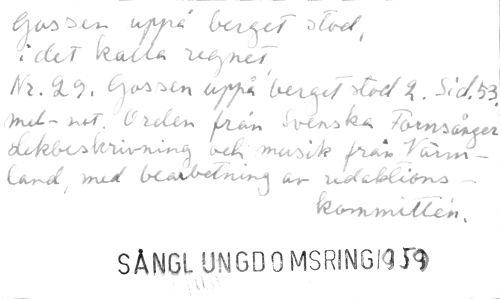 Gossen uppå berget stod,
i det kalla regnet
Nr. 29. Gossen uppå berget stod 2. Sid. 53
mel-not. Orden från Svenska Fornsånger
Lekbeskrivning och musik från Värm-
land, med bearbetning av redaktions-
kommittén.
SÅNGLUNGDOMSRING 1959